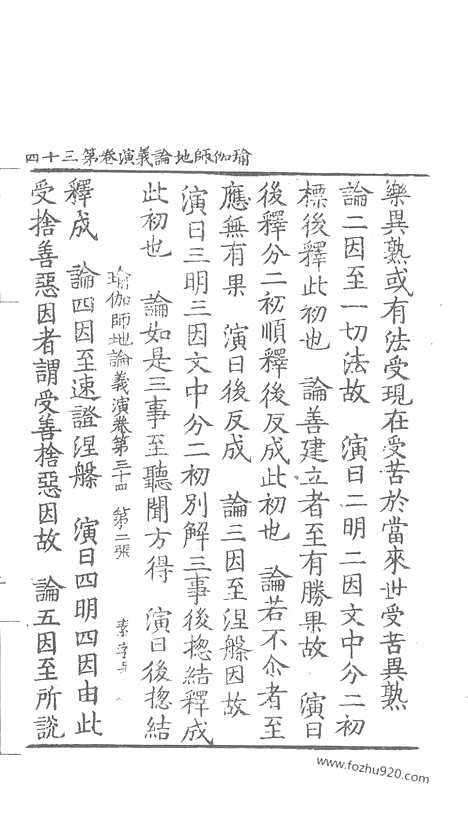 瑜伽師地論義演卷第三十四
樂異熟或有法受現在受苦於當來世受苦異熟
論二因至一切法故 演曰二明二因文中分二初
標後釋此初也 論善建立者至有勝果故 演曰
後釋分二初順釋後反成此初也 論若不尒者至
應無有果 演曰後反成 論三因至涅槃因故
演曰三明三因文中分二初別解三事後揔結釋成
此初也 論如是三事至聽聞方得 演曰後揔結
瑜伽師地論義演卷第三十四 第二張 素字号
釋成 論四因至速證涅槃 演曰四明四因由此
受捨善惡因者謂受善捨惡因故 論五因至所說
www.fozhu920.com